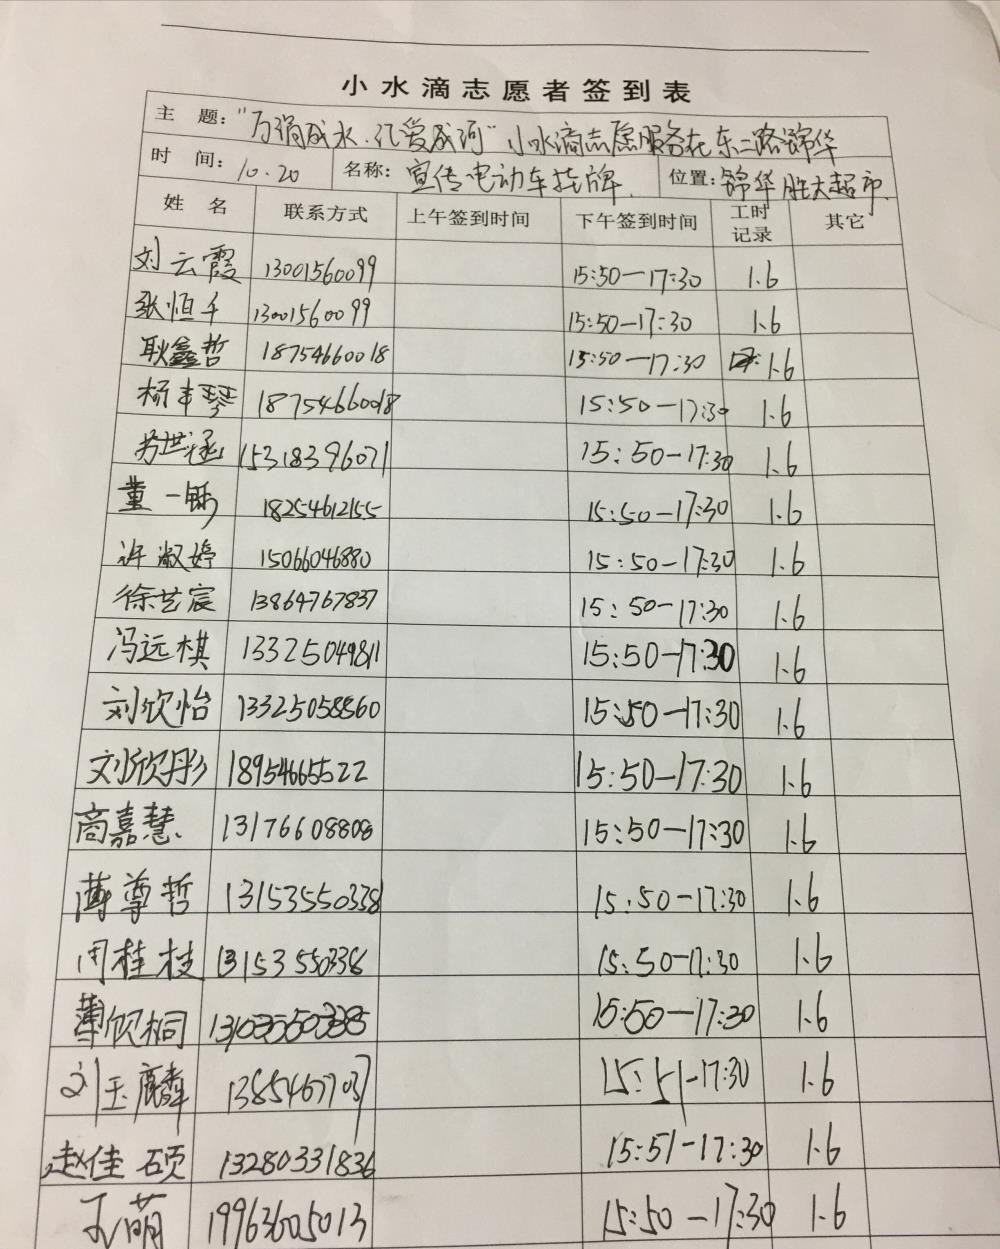 小水滴志愿者签到表
主 题: "万涓成水·汇爱成河"小水滴志愿服务在东二路锦华
时 间: 10.20 名称: 宣传电动车挂牌 位置: 锦华胜大超市
姓 名 联系方式 上午签到时间 下午签到时间 工时记录 其它
刘云霞 13001560099 15:50—17:30 1.6
张恒千 13001560099 15:50—17:30 1.6
耿鑫哲 18754660018 15:50—17:30 1.6
杨丰琴 18754660018 15:50—17:30 1.6
世涵 15318396071 15:50—17:30 1.6
董一 18254612155 15:50—17:30 1.6
许淑婷 15066046880 15:50—17:30 1.6
徐艺宸 13864767837 15:50—17:30 1.6
冯远棋 13325049811 15:50—17:30 1.6
刘欣怡 13325058860 15:50—17:30 1.6
刘欣彤 18954665522 15:50—17:30 1.6
商嘉慧 13176608808 15:50—17:30 1.6
薄尊哲 13153550338 15:50—17:30 1.6
周桂枝 13153550338 15:50—17:30 1.6
薄欣桐 15:50—17:30 1.6
刘玉麟 13854677037 15:51—17:30 1.6
赵佳硕 13280331836 15:51—17:30 1.6
萌 19963605013 15:50—17:30 1.6